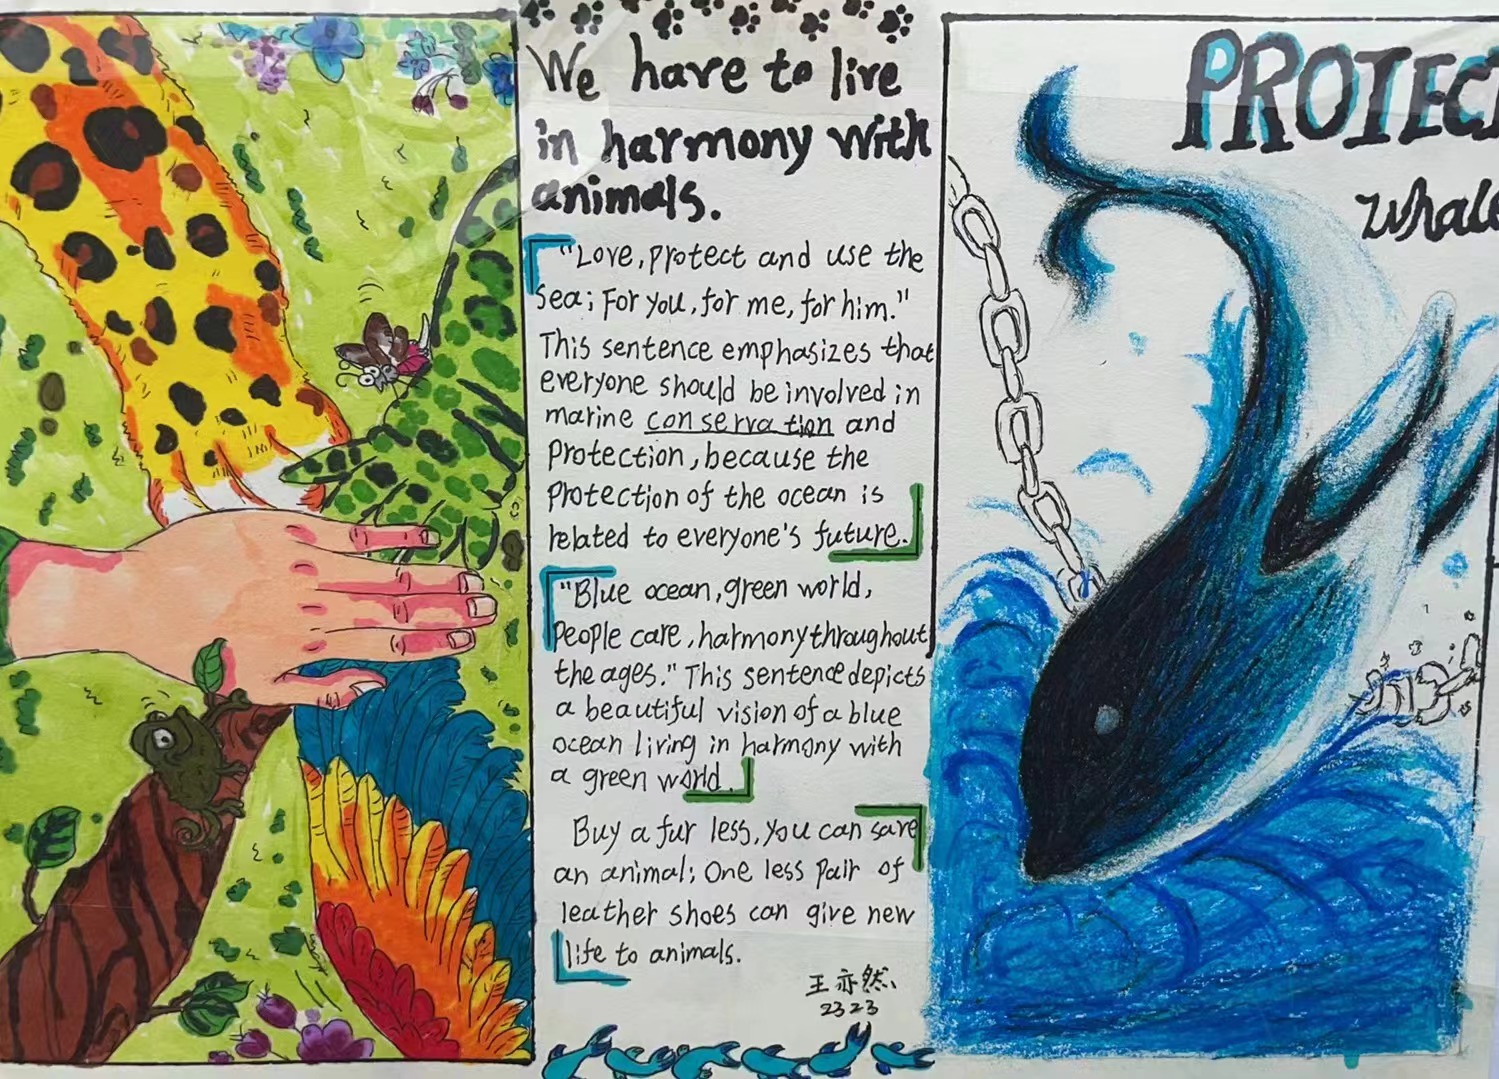 We have to live
in harmony with
animals.
"Love, protect and use the
sea; For you, for me, for him."
This sentence emphasizes that
everyone should be involved in
marine conservation and
Protection, because the
Protection of the ocean is
related to everyone's future.
"Blue ocean, green world,
People care, harmony throughout
the ages." This sentence depicts
a beautiful vision of a blue
ocean living in harmony with
a green world.
Buy a fur less, you can save
an animal; One less pair of
leather shoes can give new
life to animals.
王亦然
2323
PROTECT
whale